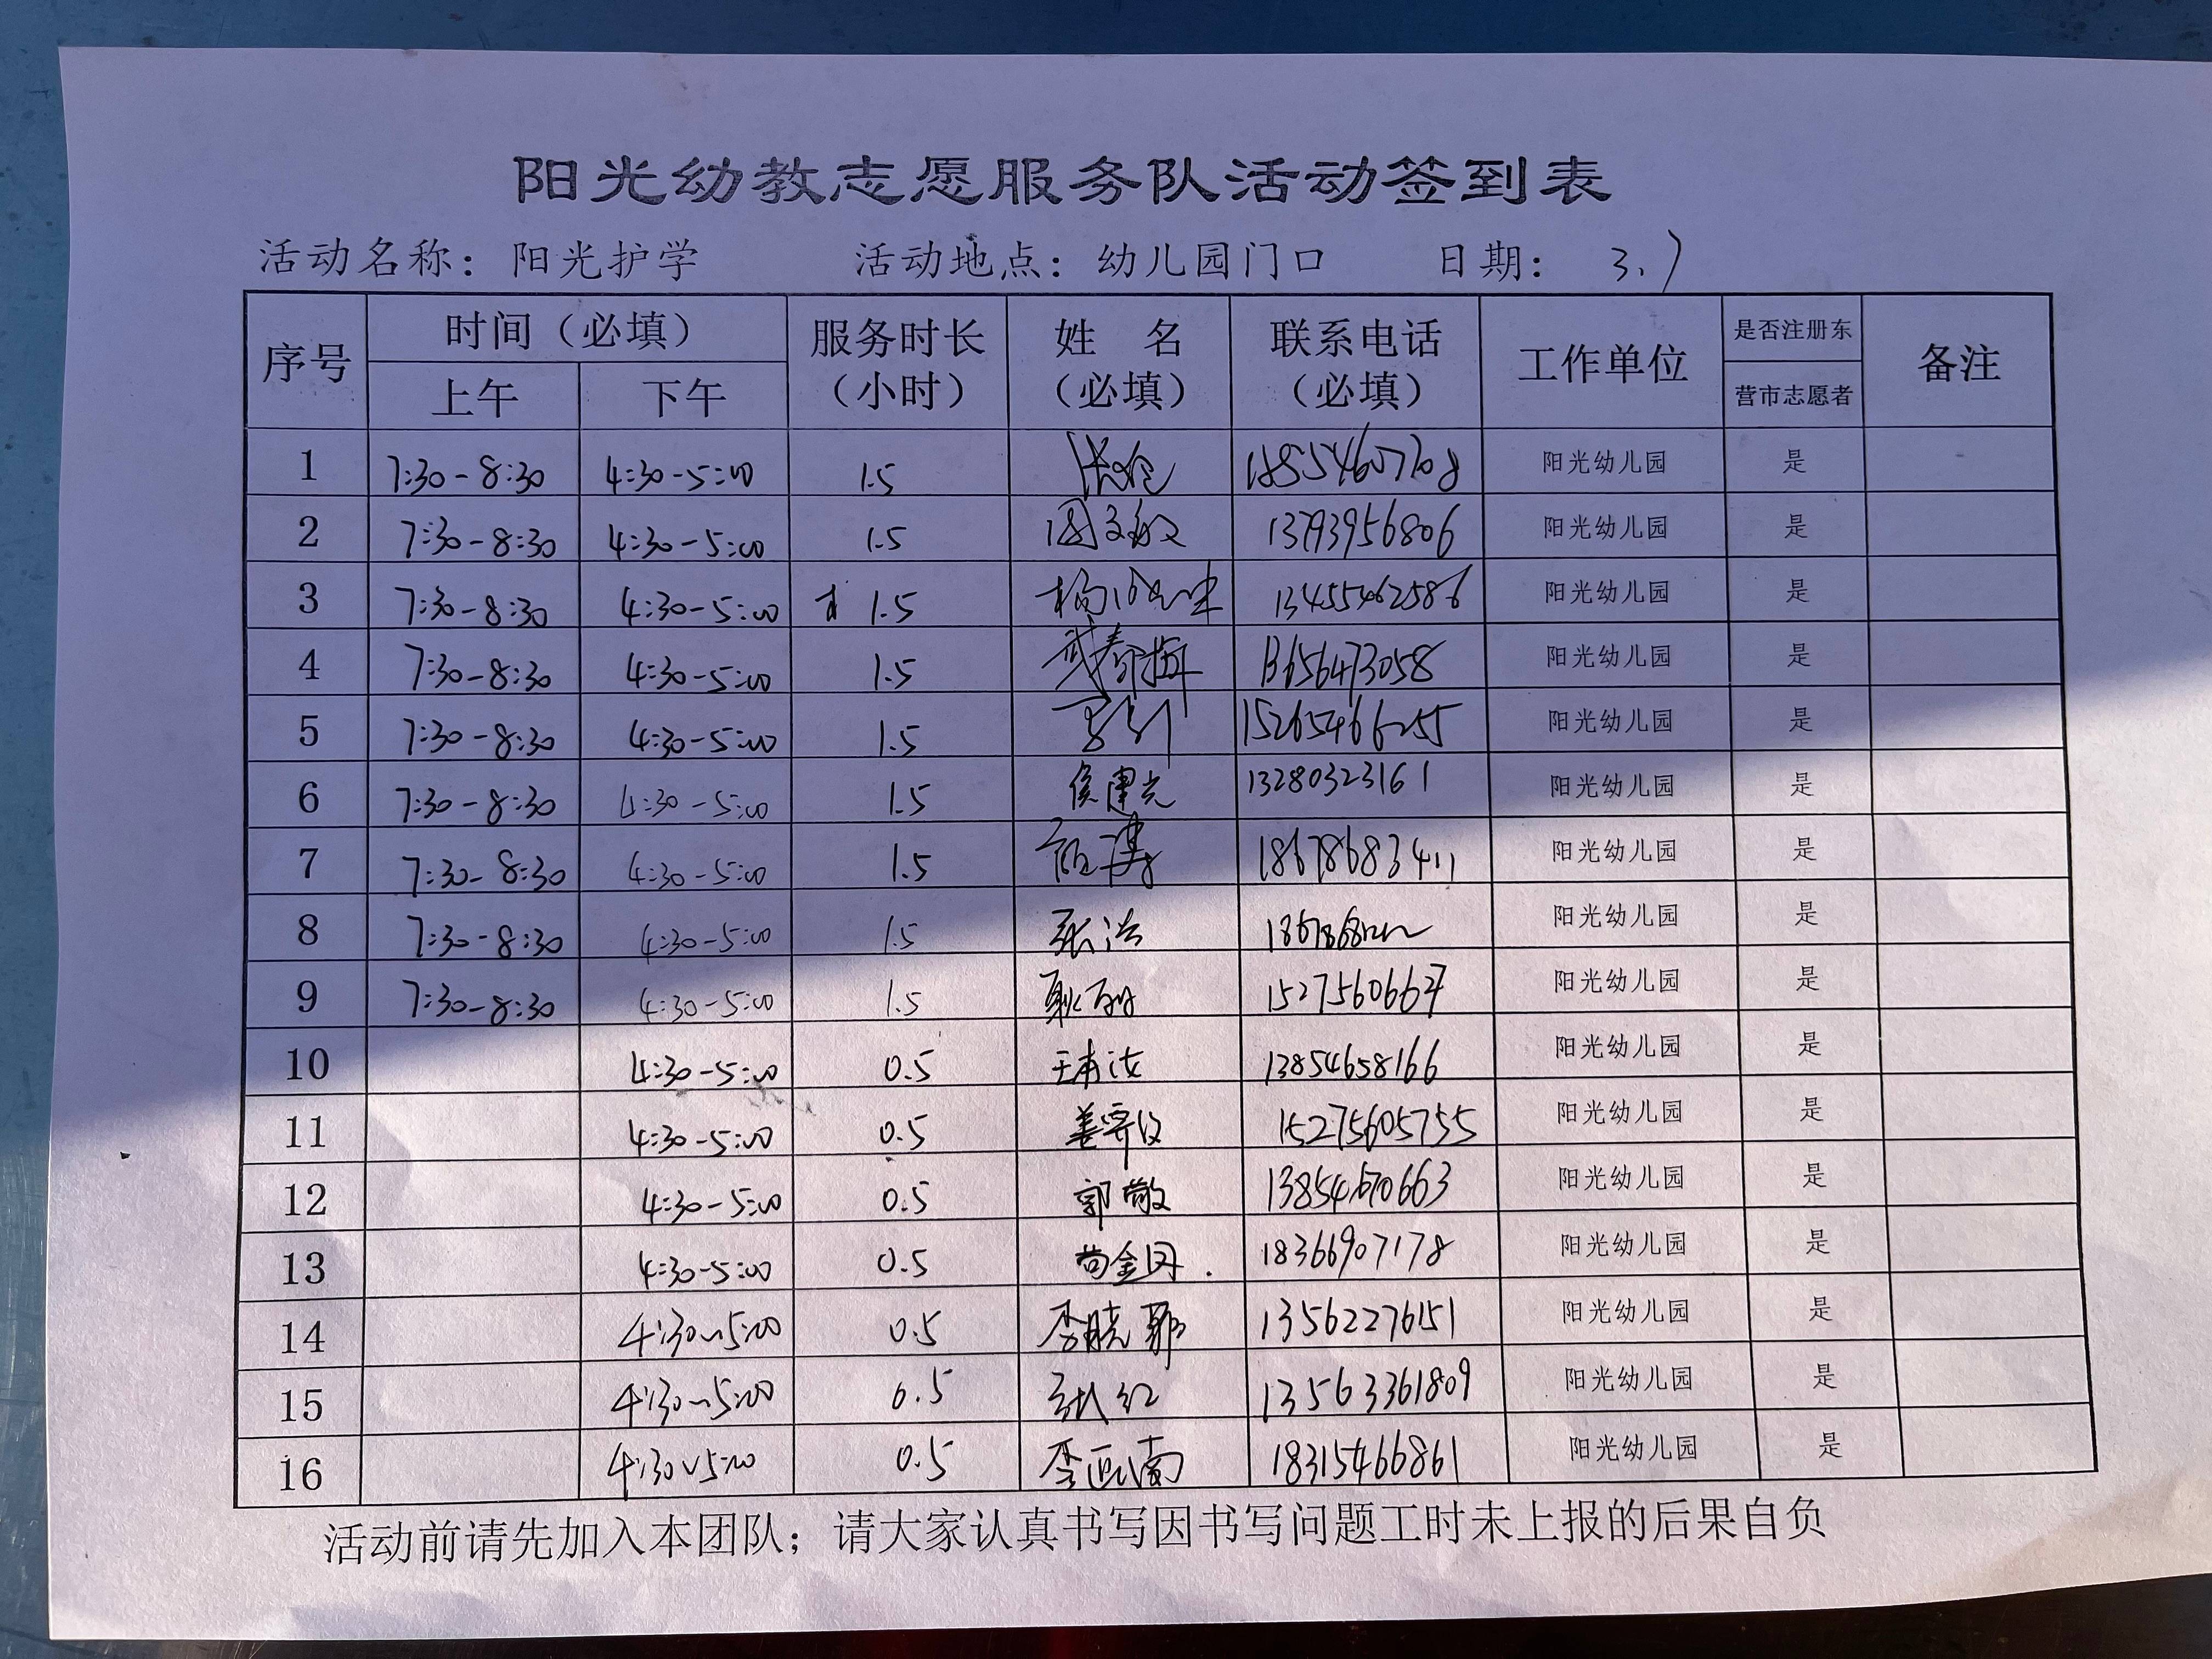 阳光幼教志愿服务队活动签到表
活动名称：阳光护学 活动地点：幼儿园门口 日期：3.7
序号 时间（必填） 上午 下午 服务时长（小时） 姓 名（必填） 联系电话（必填） 工作单位 是否注册东营市志愿者 备注
1 7:30-8:30 4:30-5:00 1.5 阳光幼儿园 是
2 7:30-8:30 4:30-5:00 1.5 13793956806 阳光幼儿园 是
3 7:30-8:30 4:30-5:00 1.5 13455462586 阳光幼儿园 是
4 7:30-8:30 4:30-5:00 1.5 武春梅 13656473058 阳光幼儿园 是
5 7:30-8:30 4:30-5:00 1.5 阳光幼儿园 是
6 7:30-8:30 4:30-5:00 1.5 侯建光 13280323161 阳光幼儿园 是
7 7:30-8:30 4:30-5:00 1.5 18678683411 阳光幼儿园 是
8 7:30-8:30 4:30-5:00 1.5 阳光幼儿园 是
9 7:30-8:30 4:30-5:00 1.5 阳光幼儿园 是
10 4:30-5:00 0.5 13854658166 阳光幼儿园 是
11 4:30-5:00 0.5 15275605755 阳光幼儿园 是
12 4:30-5:00 0.5 郭敬 13854670663 阳光幼儿园 是
13 4:30-5:00 0.5 18366907178 阳光幼儿园 是
14 4:30~5:00 0.5 13562276151 阳光幼儿园 是
15 4:30~5:00 0.5 张红 13563361809 阳光幼儿园 是
16 4:30~5:00 0.5 18315466861 阳光幼儿园 是
活动前请先加入本团队；请大家认真书写因书写问题工时未上报的后果自负